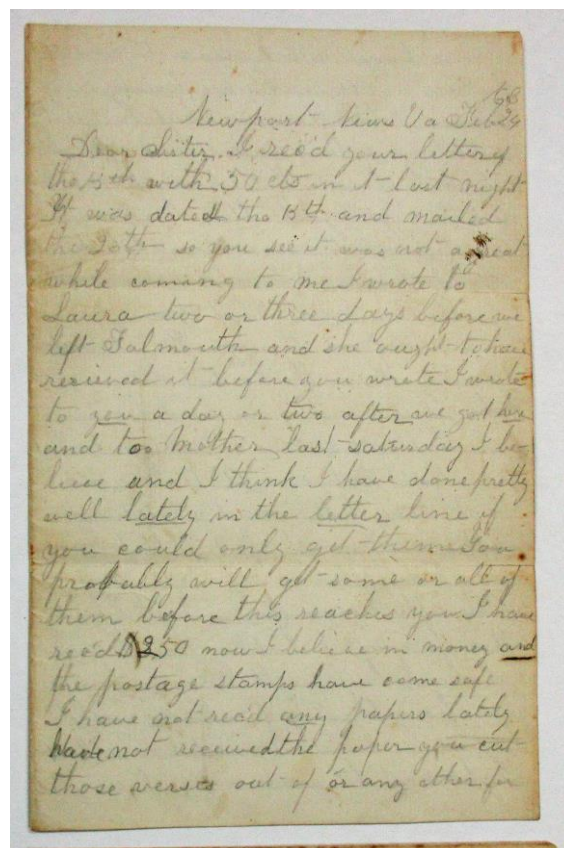 63
Newport News Va Feb 24
Dear Sister. I rec'd your letter of
the 15th with 50 cts in it last night
It was dated the 15th and mailed
the 20th so you see it was not a great
while coming to me I wrote to
Laura two or three days before we
left Falmouth and she ought to have
recieved it before you wrote I wrote
to you a day or two after we got here
and too Mother last saturday I be-
lieve and I think I have done pretty
well lately in the letter line if
you could only get them You
probably will get some or all of
them before this reaches you. I have
rec'd $2 50 now I believe in money and
the postage stamps have come safe
I have not rec'd any papers lately
Have not received the paper you cut
those verses out of or any other for